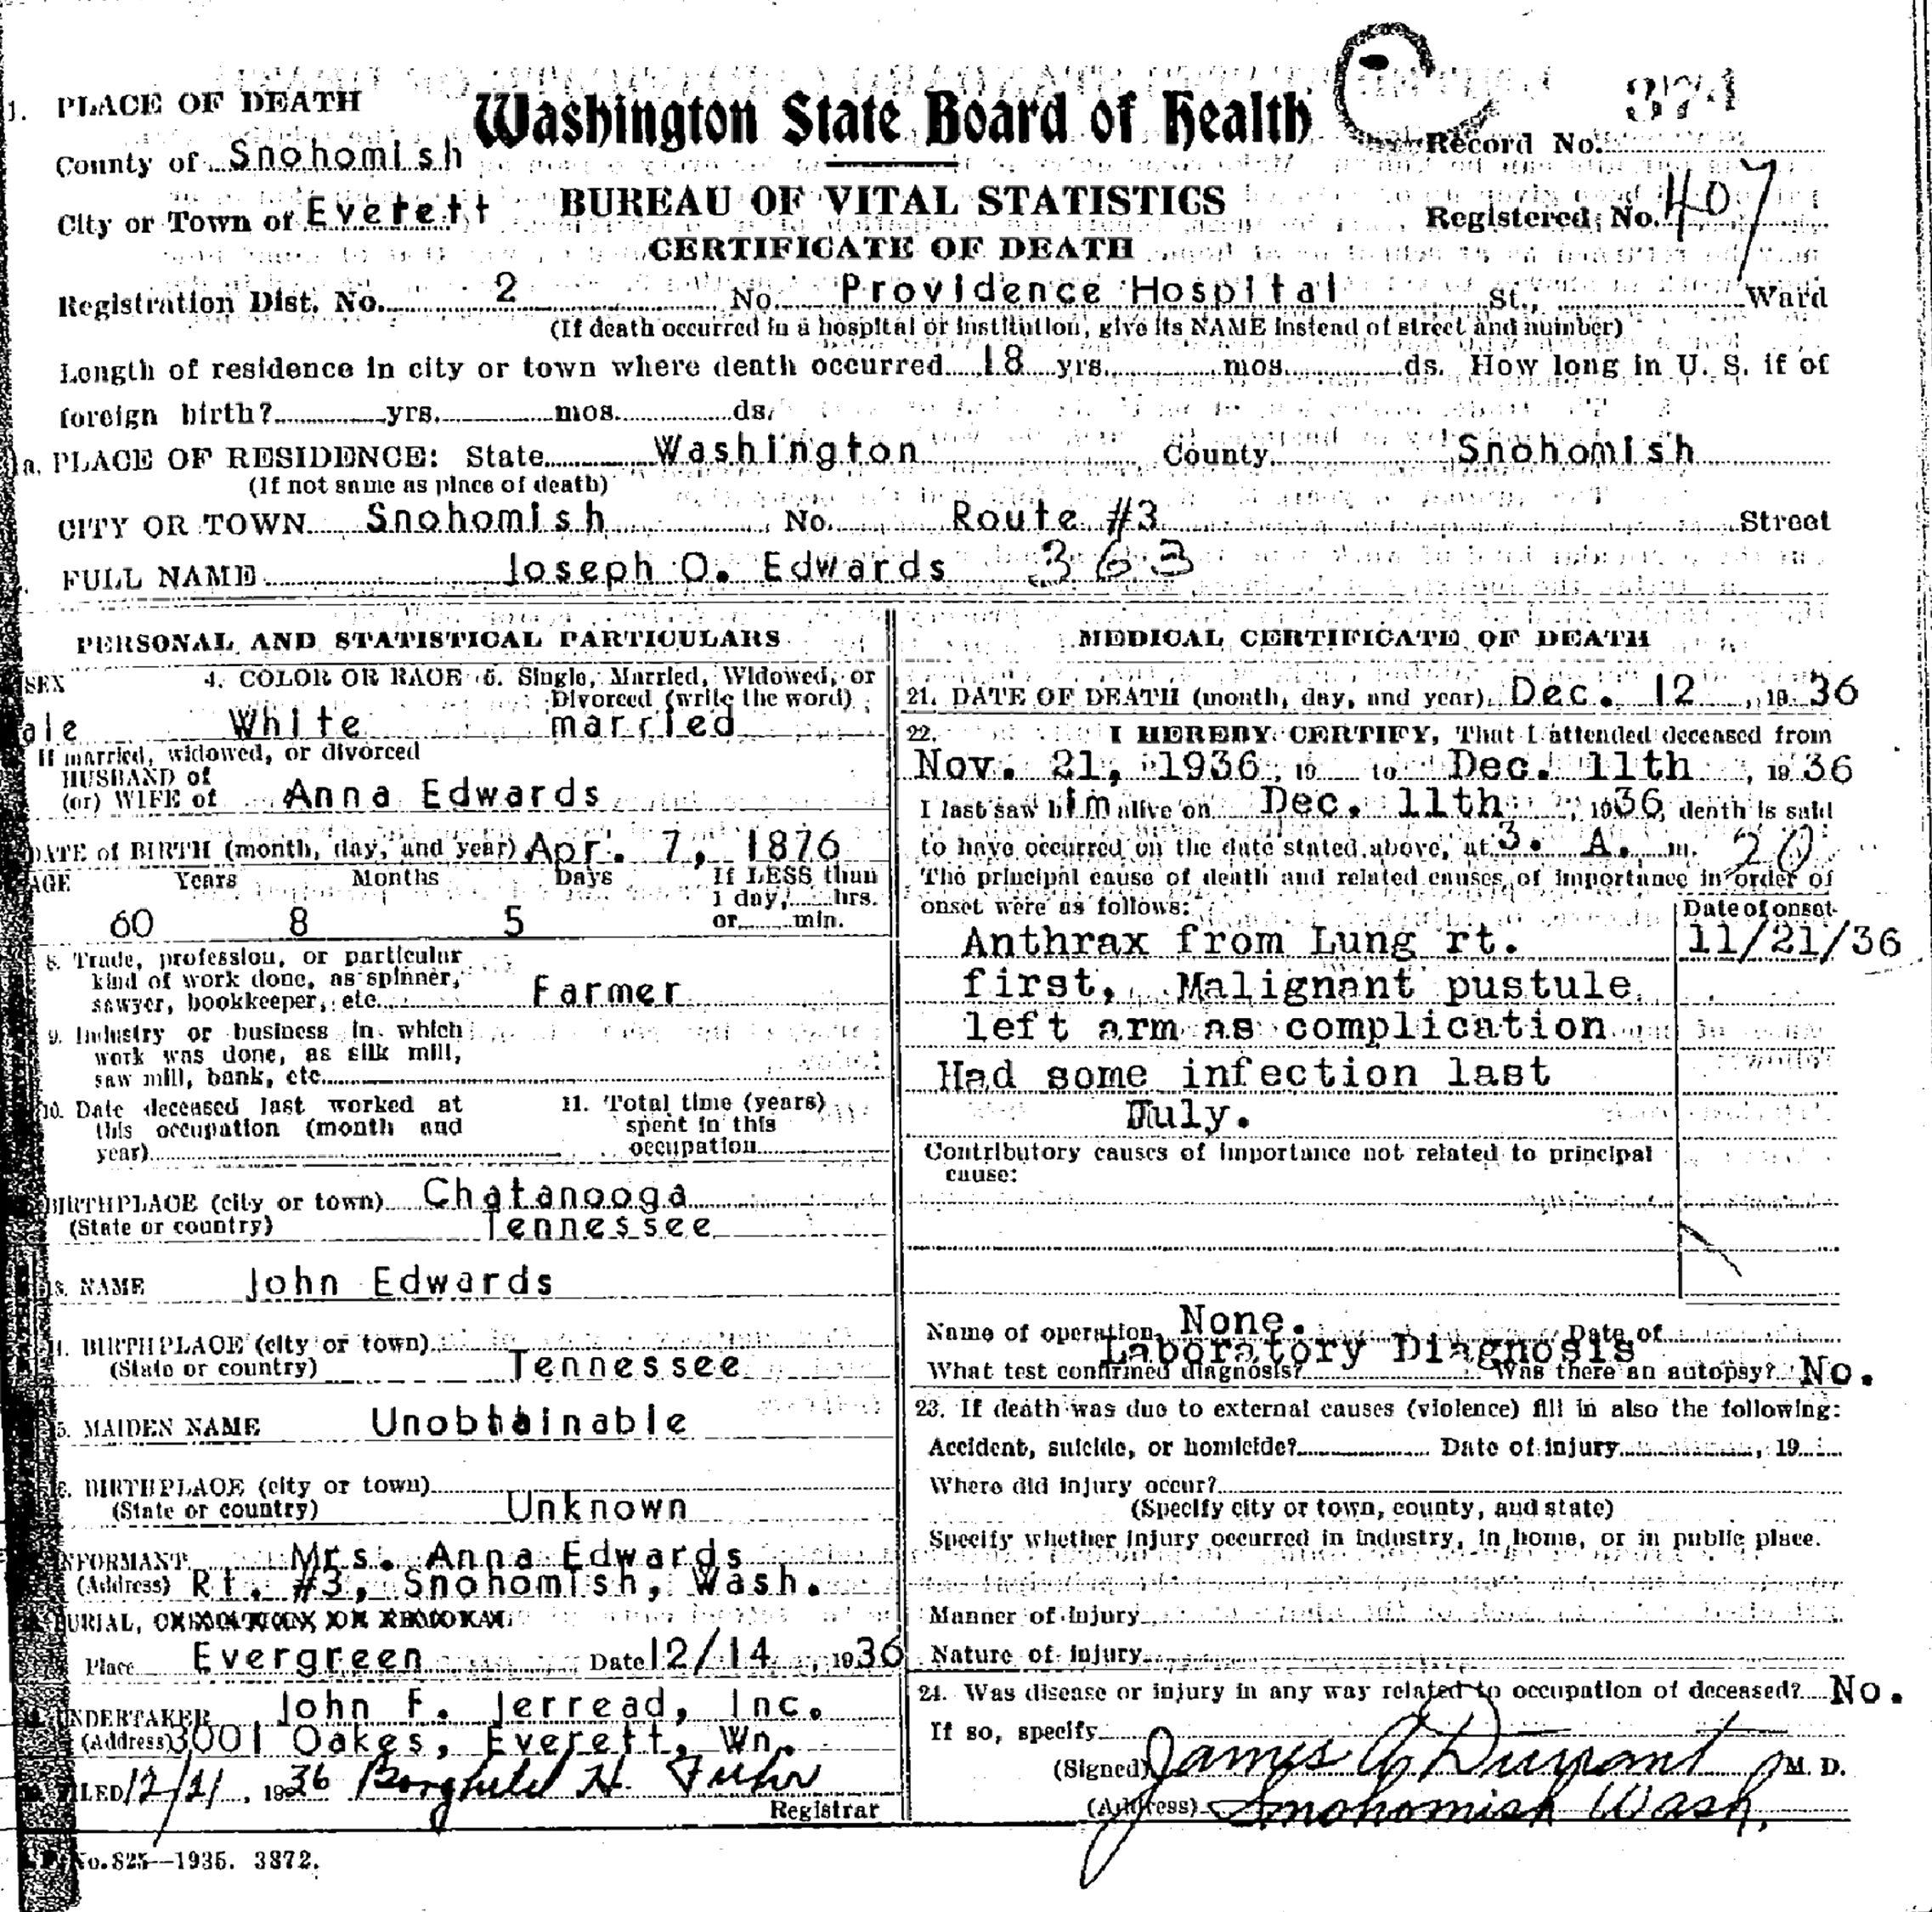 1. PLACE OF DEATH
Washington State Board of Health
374
Record No.
County of Snohomish
City or Town of Everett
BUREAU OF VITAL STATISTICS
Registered No. 407
CERTIFICATE OF DEATH
Registration Dist. No. 2 No. Providence Hospital St., Ward
(If death occurred in a hospital or institution, give its NAME instead of street and number)
Length of residence in city or town where death occurred 18 yrs. mos. ds. How long in U. S. if of
foreign birth? yrs. mos. ds.
1a. PLACE OF RESIDENCE: State Washington County Snohomish
(If not same as place of death)
CITY OR TOWN Snohomish No. Route #3 Street
FULL NAME Joseph O. Edwards 363
PERSONAL AND STATISTICAL PARTICULARS
SEX 4. COLOR OR RACE 5. Single, Married, Widowed, or
Divorced (write the word)
ale White married
If married, widowed, or divorced
HUSBAND of
(or) WIFE of Anna Edwards
DATE of BIRTH (month, day, and year) Apr. 7, 1876
AGE Years Months Days If LESS than
1 day, hrs.
60 8 5 or min.
8. Trade, profession, or particular
kind of work done, as spinner,
sawyer, bookkeeper, etc. Farmer
9. Industry or business in which
work was done, as silk mill,
saw mill, bank, etc.
10. Date deceased last worked at
this occupation (month and
year)
11. Total time (years)
spent in this
occupation
BIRTHPLACE (city or town) Chatanooga
(State or country) Tennessee
13. NAME John Edwards
14. BIRTHPLACE (city or town)
(State or country) Tennessee
15. MAIDEN NAME Unobtainable
16. BIRTHPLACE (city or town)
(State or country) Unknown
INFORMANT Mrs. Anna Edwards
(Address) Rt. #3, Snohomish, Wash.
BURIAL, CREMATION OR REMOVAL
Place Evergreen Date 12/14, 1936
UNDERTAKER John F. Jerread, Inc.
(Address) 3001 Oakes, Everett, Wn.
FILED 12/21, 1936 Borghild H. Fuhr
Registrar
No. 825—1935. 3872.
MEDICAL CERTIFICATE OF DEATH
21. DATE OF DEATH (month, day, and year) Dec. 12, 19 36
22. I HEREBY CERTIFY, That I attended deceased from
Nov. 21, 1936, 19 to Dec. 11th, 19 36
I last saw him alive on Dec. 11th, 1936, death is said
to have occurred on the date stated above, at 3. A. m. 20
The principal cause of death and related causes of importance in order of
onset were as follows: Date of onset
Anthrax from Lung rt. 11/21/36
first, Malignant pustule
left arm as complication
Had some infection last
July.
Contributory causes of importance not related to principal
cause:
Name of operation None. Date of
Laboratory Diagnosis
What test confirmed diagnosis? Was there an autopsy? No.
23. If death was due to external causes (violence) fill in also the following:
Accident, suicide, or homicide? Date of injury, 19
Where did injury occur?
(Specify city or town, county, and state)
Specify whether injury occurred in industry, in home, or in public place.
Manner of injury
Nature of injury
24. Was disease or injury in any way related to occupation of deceased? No.
If so, specify
(Signed) James A Durrant M. D.
(Address) Snohomish Wash.